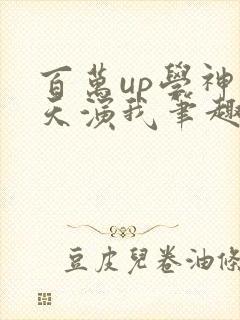 百萬up學神
天演我筆趣
豆皮兒卷油條